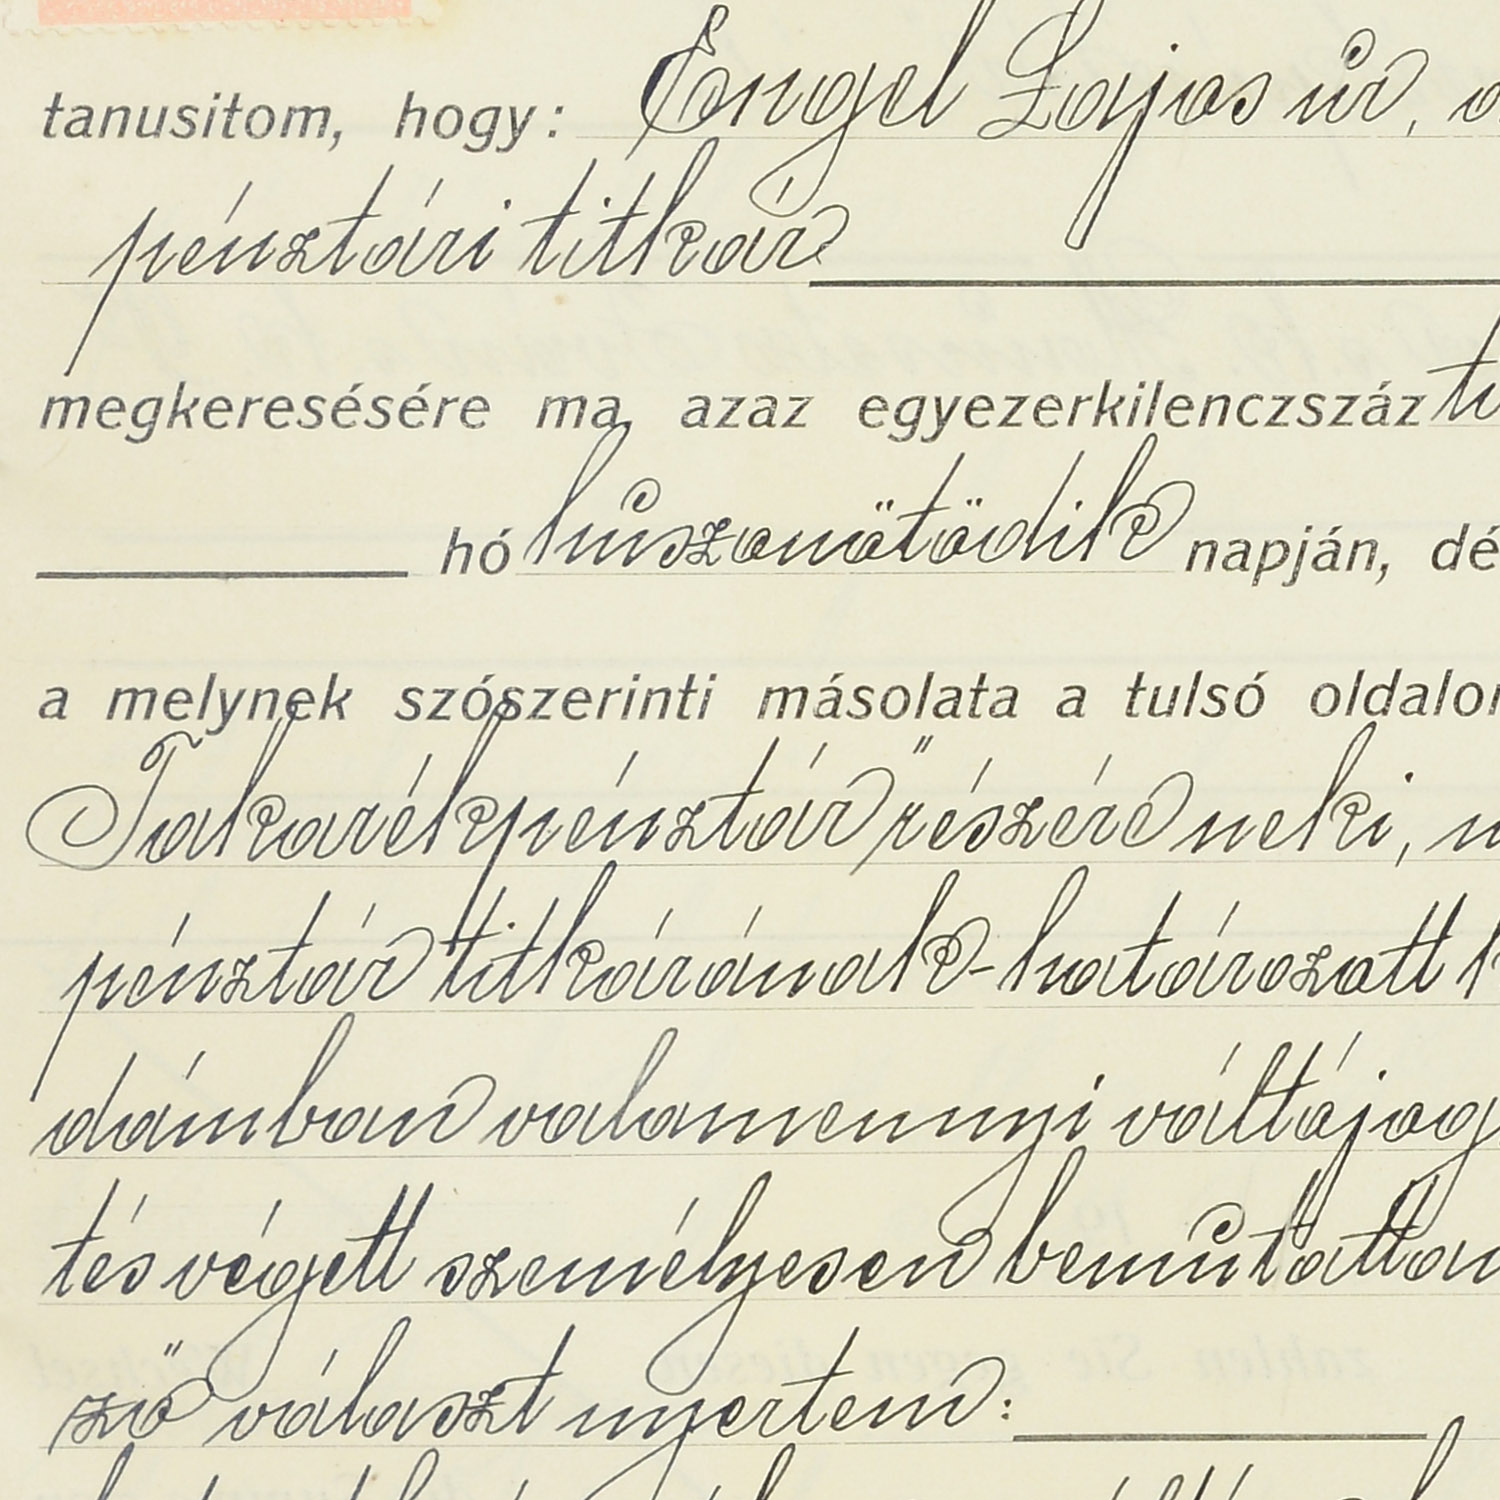 tanusitom, hogy: Engel Lajos úr,
pénztári titkár
megkeresésére ma, azaz egyezerkilenczszáz
hó huszonötödik napján,
a melynek szószerinti másolata a tulsó
Takarékpénztár" részére neki,
pénztár titkárának - határozott
dámban valamennyi váltójog
tés végett személyesen bemutattam
ző választ nyertem: